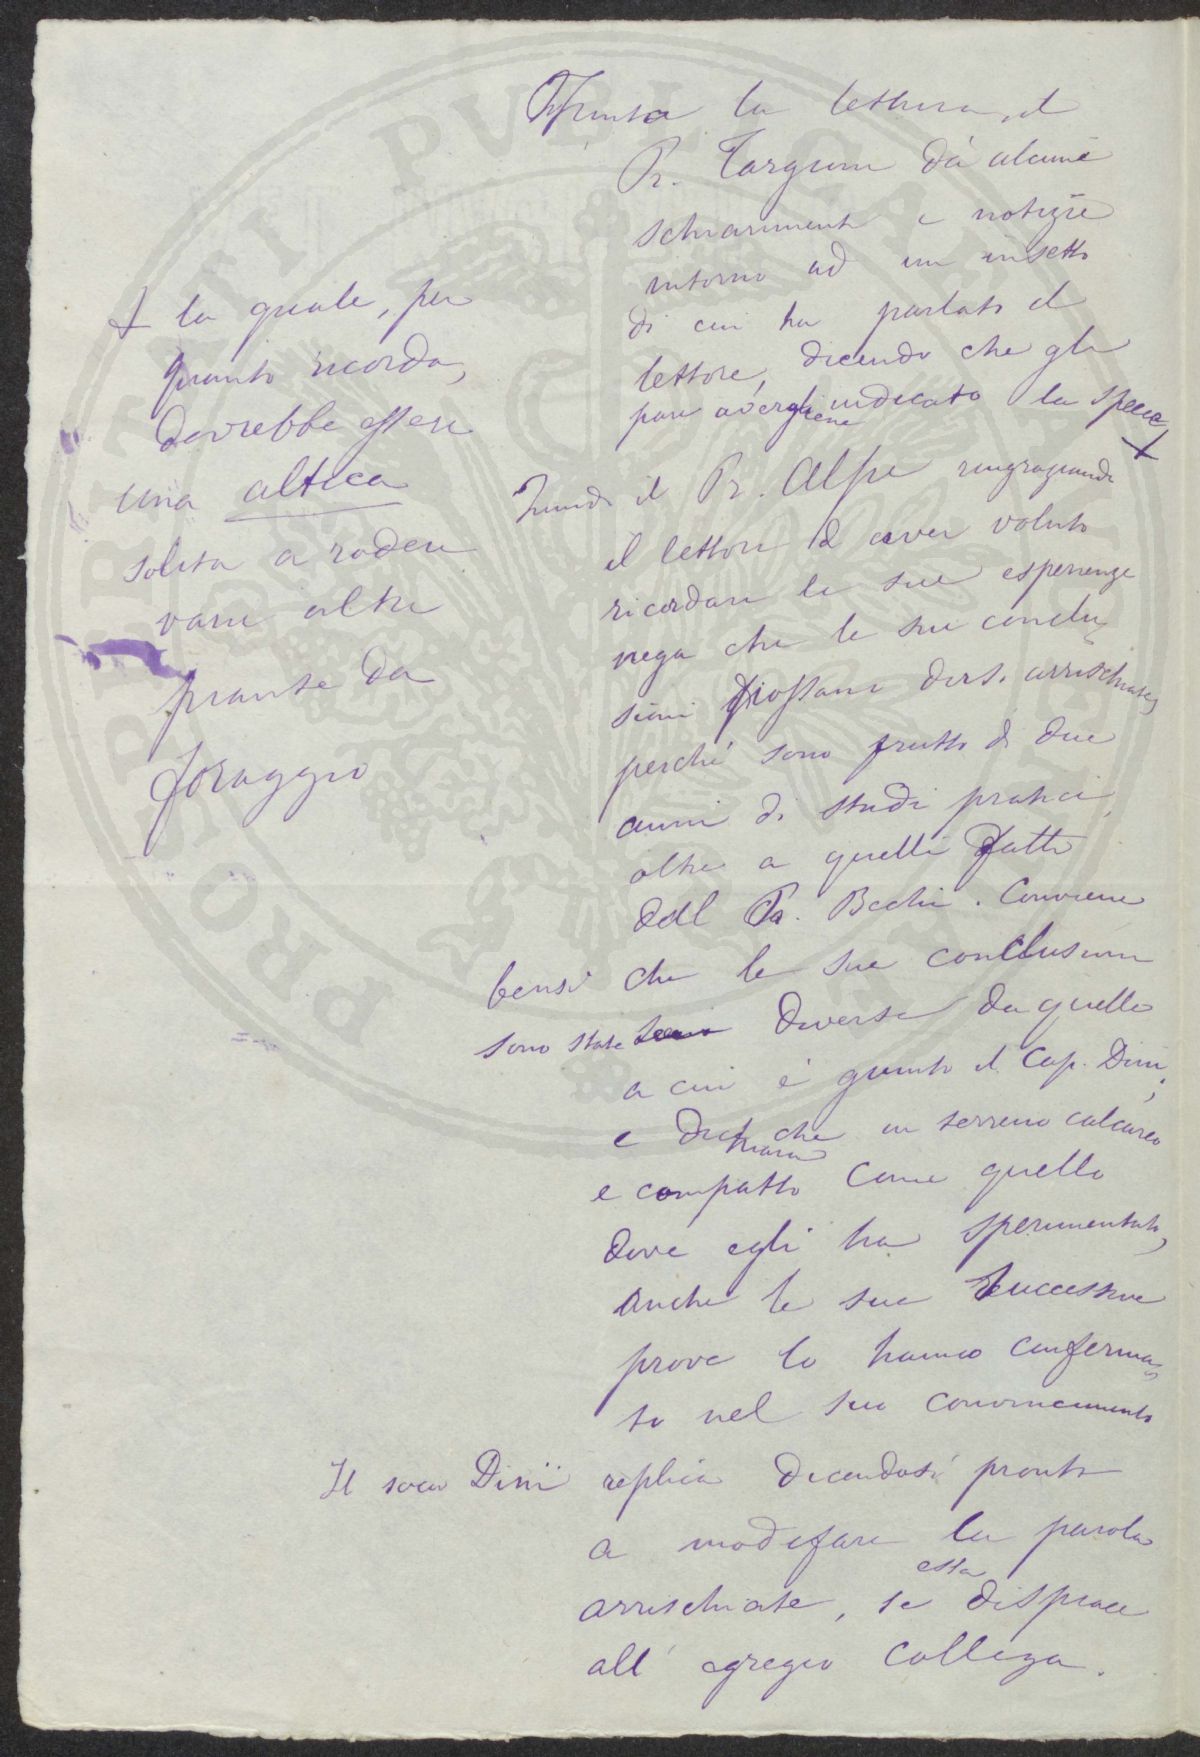 Finita la lettura, il
Pr. Targioni dà alcune
schiarimenti e notizie
intorno ad un insetto
di cui ha parlato il
lettore, dicendo che gli
pare avergliene indicato la specie
+
+ la quale, per
quanto ricorda,
dovrebbe essere
una altica
solita a rodere
varie altre
piante da
foraggio
Quindi il Pr. Alpe ringraziando
il lettore d'aver voluto
ricordare le sue esperienze
nega che le sue conclu-
sioni possano dirsi arrischiate,
perché sono frutto di due
anni di studi pratici,
oltre a quelli fatti
dal Pr. Bechi. Conviene
bensì che le sue conclusioni
sono state diverse da quelle
a cui è giunto il Cap. Dini,
e dichiara che in terreno calcareo
e compatto come quello
dove egli ha sperimentato,
anche le sue successive
prove lo hanno conferma-
to nel suo convincimento
Il socio Dini replica dicendosi pronto
a modifare la parola
arrischiate, se essa dispiace
all'egregio collega.
PROPRIETATI PVBLICAE